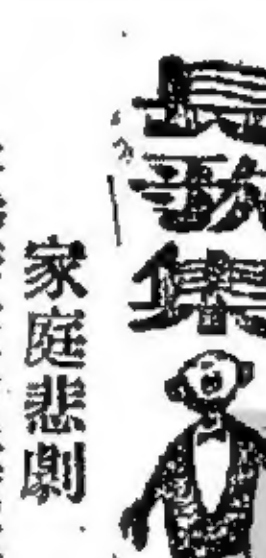 長歌集
家庭悲劇